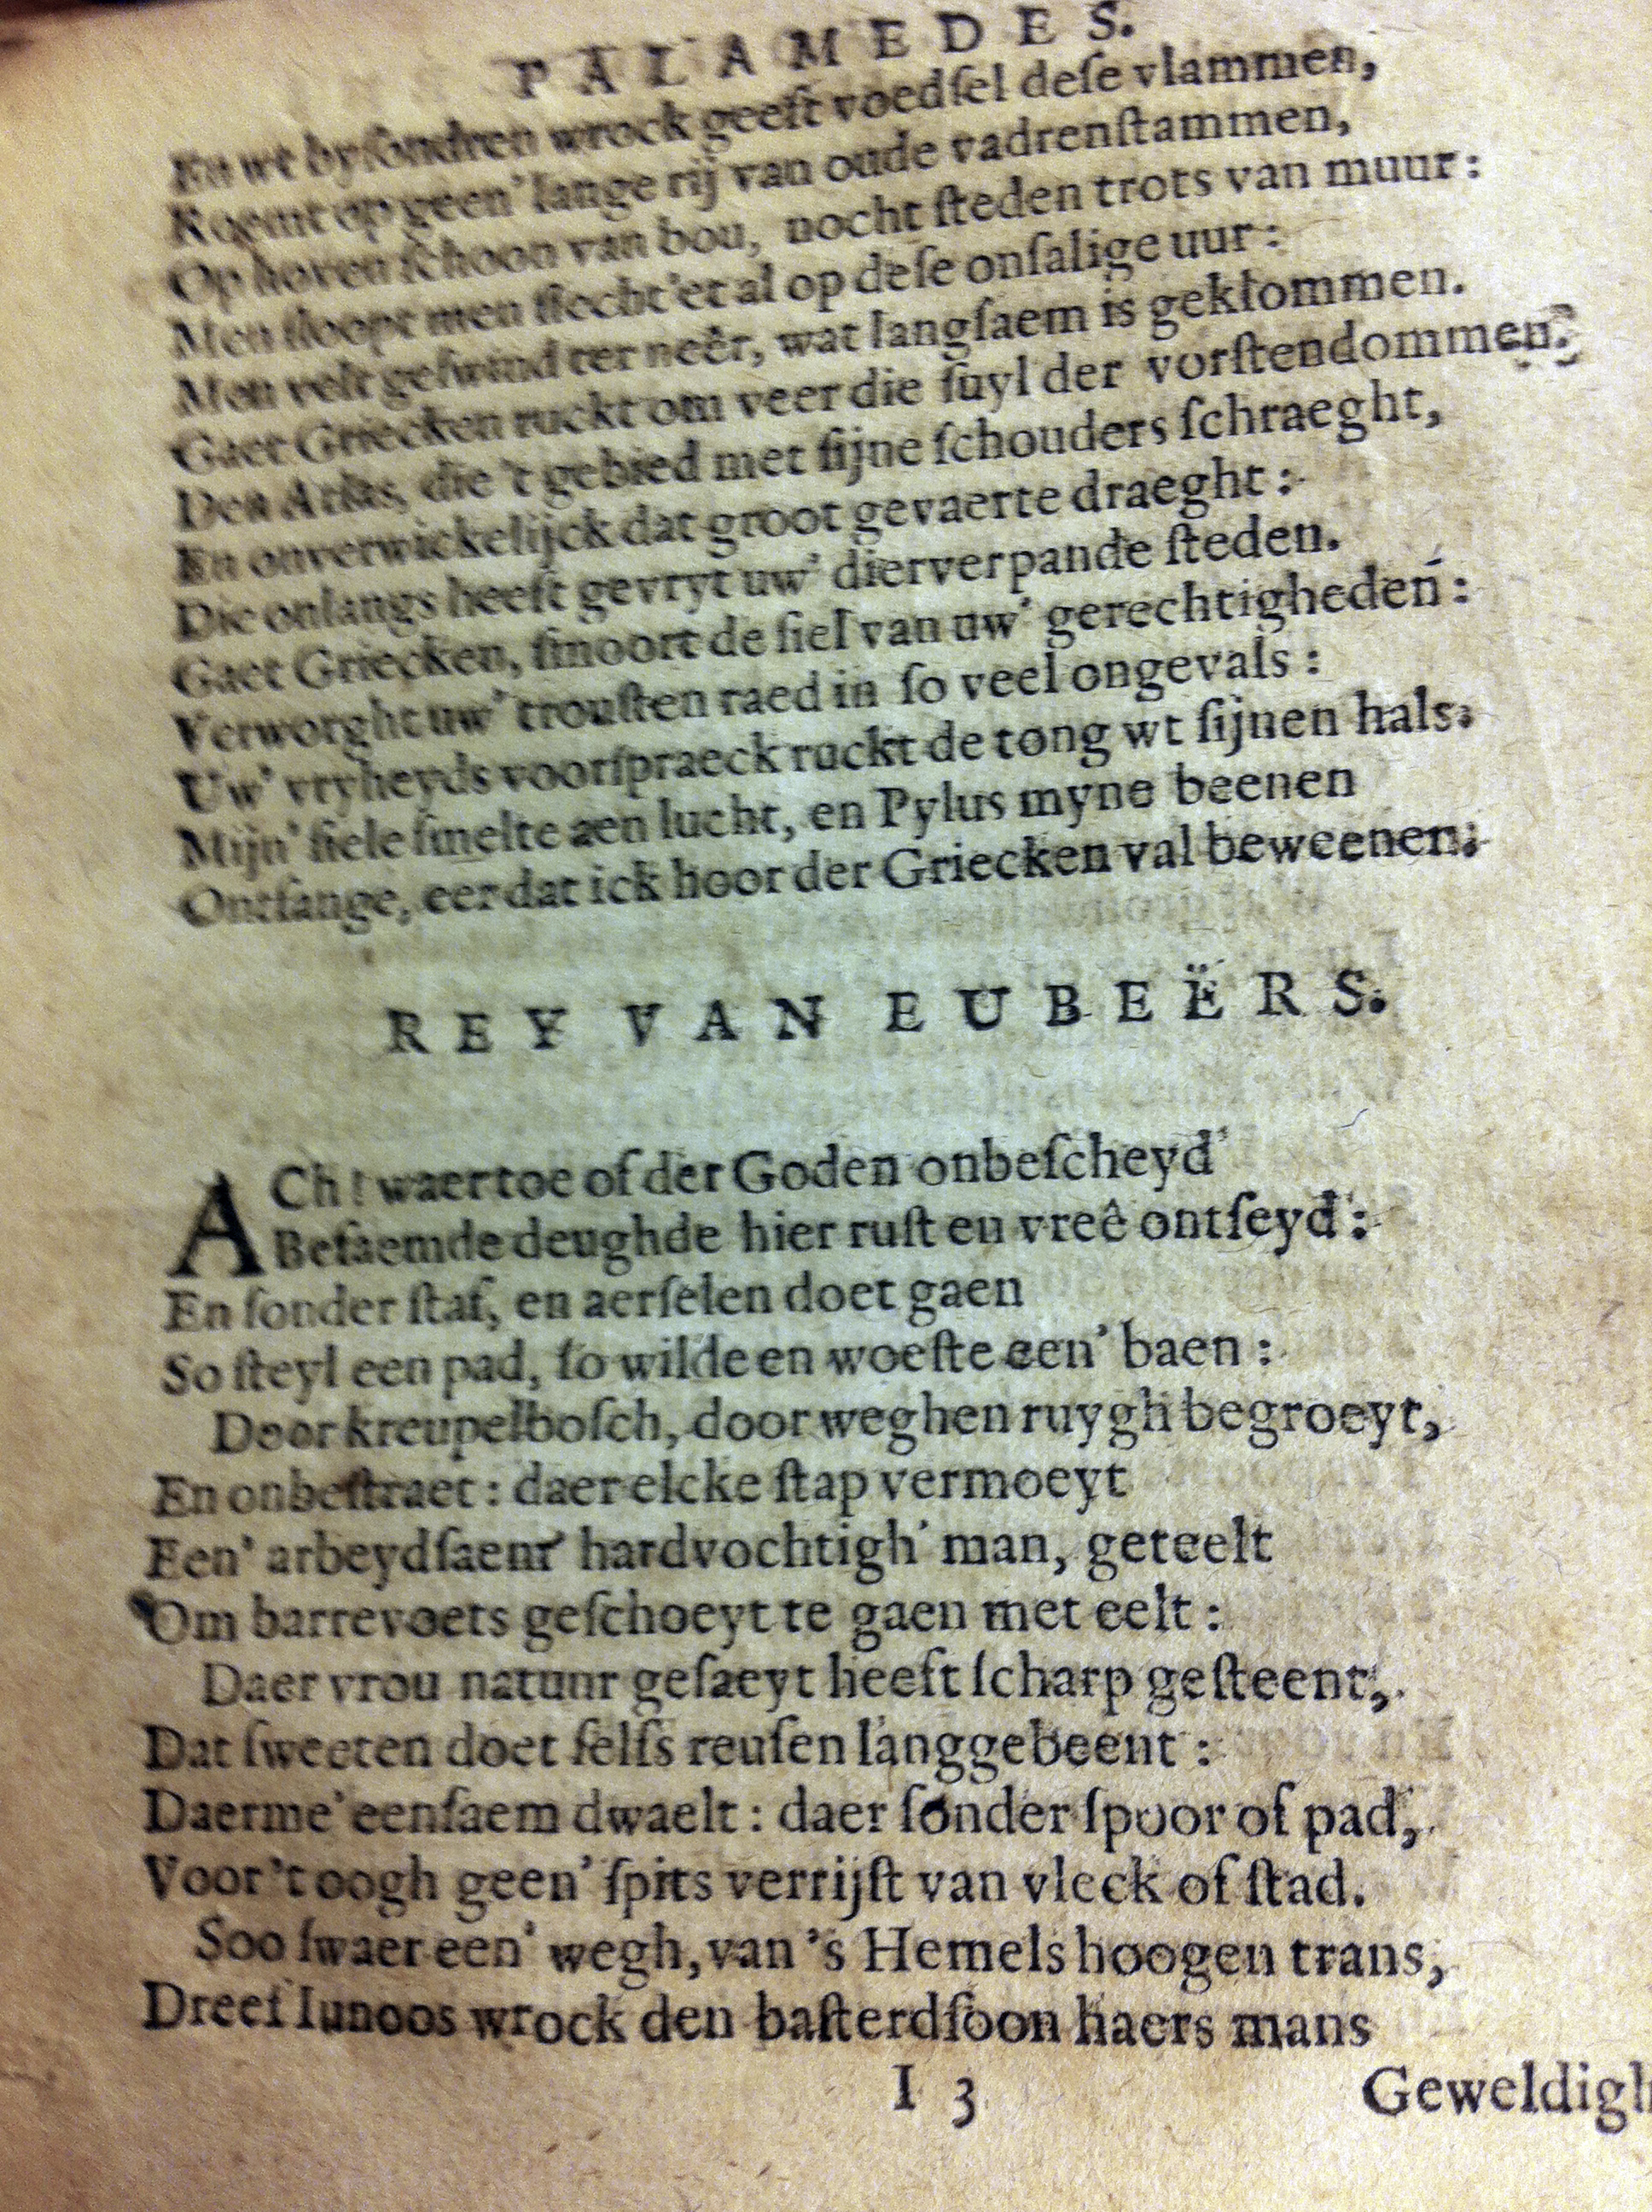 PALAMEDES.
En wt byſondren wrock geeft voedſel deſe vlammen,
Roemt op geen' lange rij van oude vadrenſtammen,
Op hoven ſchoon van bou, nocht ſteden trots van muur:
Men ſloopt men ſlecht'et al op deſe onſalige uur:
Men velt geſwind ter neêr, wat langſaem is geklommen.
Gaet Griecken ruckt om veer die ſuyl der vorſtendommen.
Den Atlas, die 't gebied met ſijne ſchouders ſchraeght,
En onverwickelijck dat groot gevaerte draeght:
Die onlangs heeft gevryt uw' dierverpande ſteden.
Gaet Griecken, ſmoort de ſiel van uw' gerechtigheden:
Verworght uw' trouſten raed in ſo veel ongevals:
Uw' vryheyds voorſpraeck ruckt de tong wt ſijnen hals.
Mijn' ſiele ſmelte aen lucht, en Pylus myne beenen
Ontfange, eer dat ick hoor der Griecken val beweenen.
REY VAN EUBEËRS.
ACh! waer toe of der Goden onbeſcheyd
Befaemde deughde hier ruſt en vreê ontſeyd:
En ſonder ſtaf, en aerſelen doet gaen
So ſteyl een pad, ſo wilde en woeſte een' baen:
Door kreupelboſch, door weghen ruygh begroeyt,
En onbeſtraet: daer elcke ſtap vermoeyt
Een' arbeydſaem' hardvochtigh' man, geteelt
Om barrevoets geſchoeyt te gaen met eelt:
Daer vrou natuur geſaeyt heeft ſcharp geſteent,
Dat ſweeten doet ſelfs reuſen langgebeent:
Daerme' eenſaem dwaelt: daer ſonder ſpoor of pad,
Voor 't oogh geen' ſpits verrijſt van vleck of ſtad.
Soo ſwaer een' wegh, van 's Hemels hoogen trans,
Dreef Iunoos wrock den baſterdſoon haers mans
I 3
Geweldigh